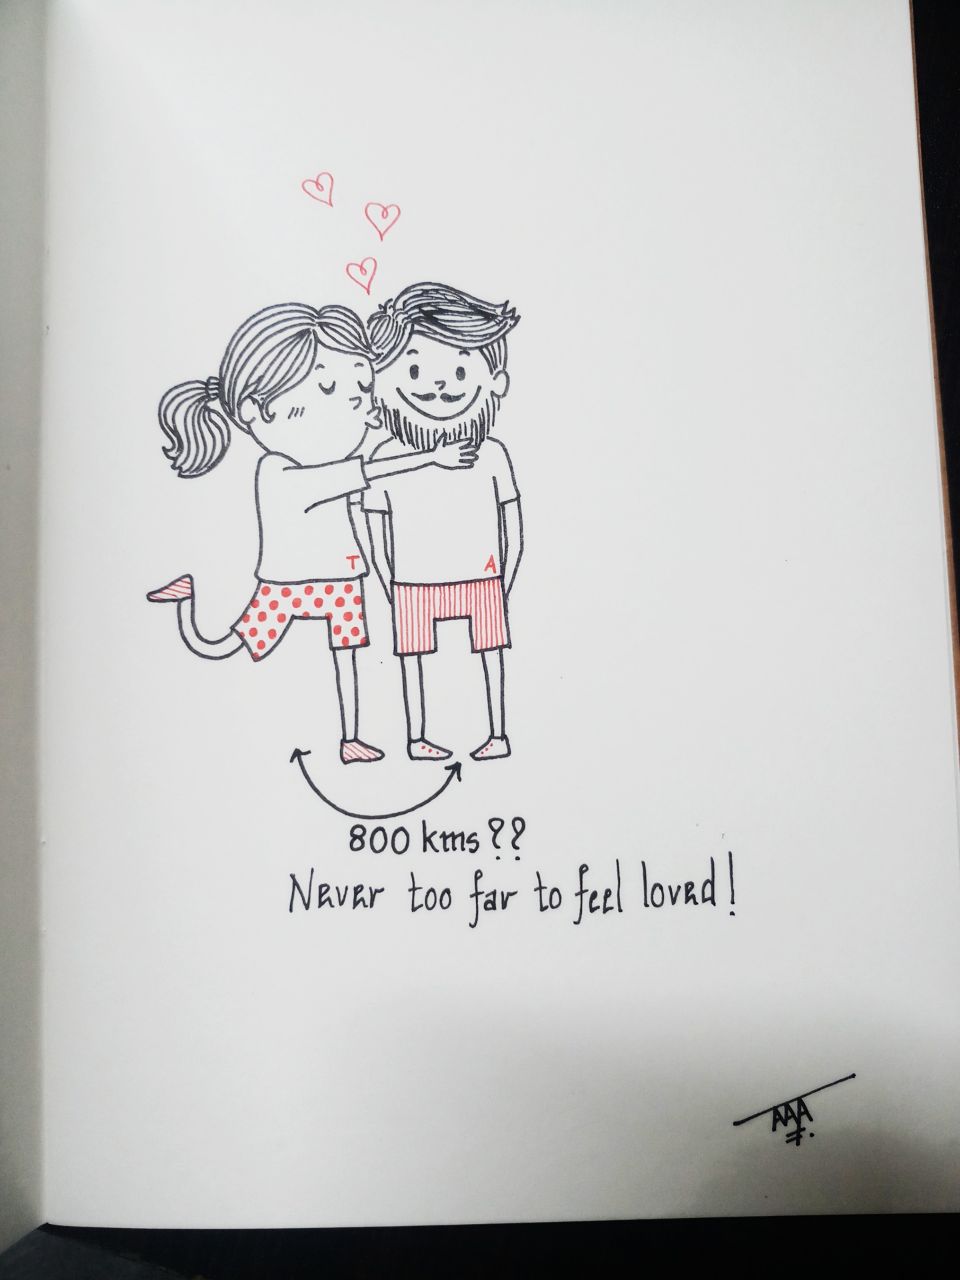 T
A
800 kms??
Never too far to feel loved!
AAA